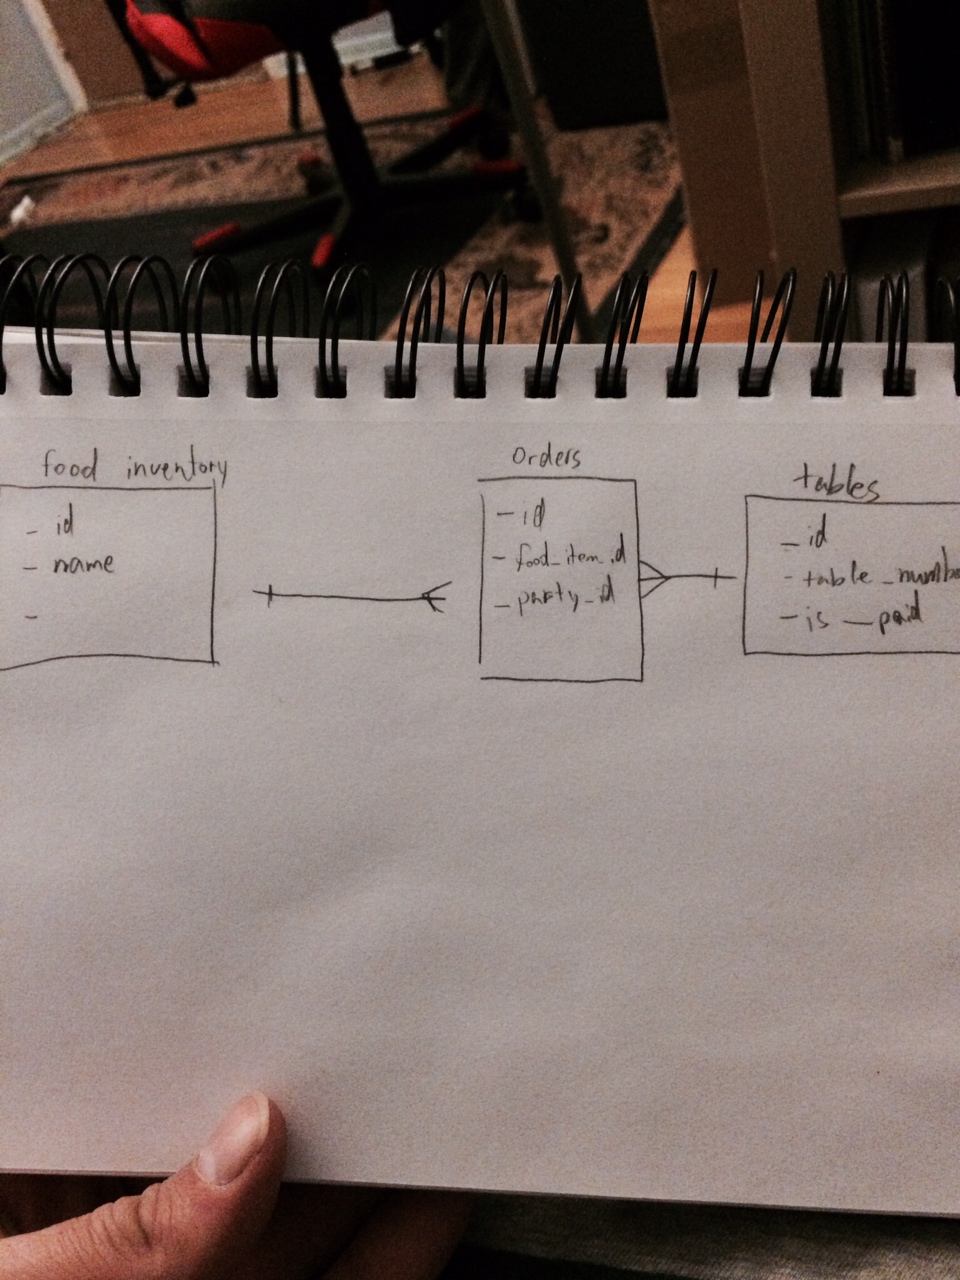 food inventory
- id
- name
-
orders
- id
- food_item_id
- party_id
tables
- id
- table_numbe
- is_paid